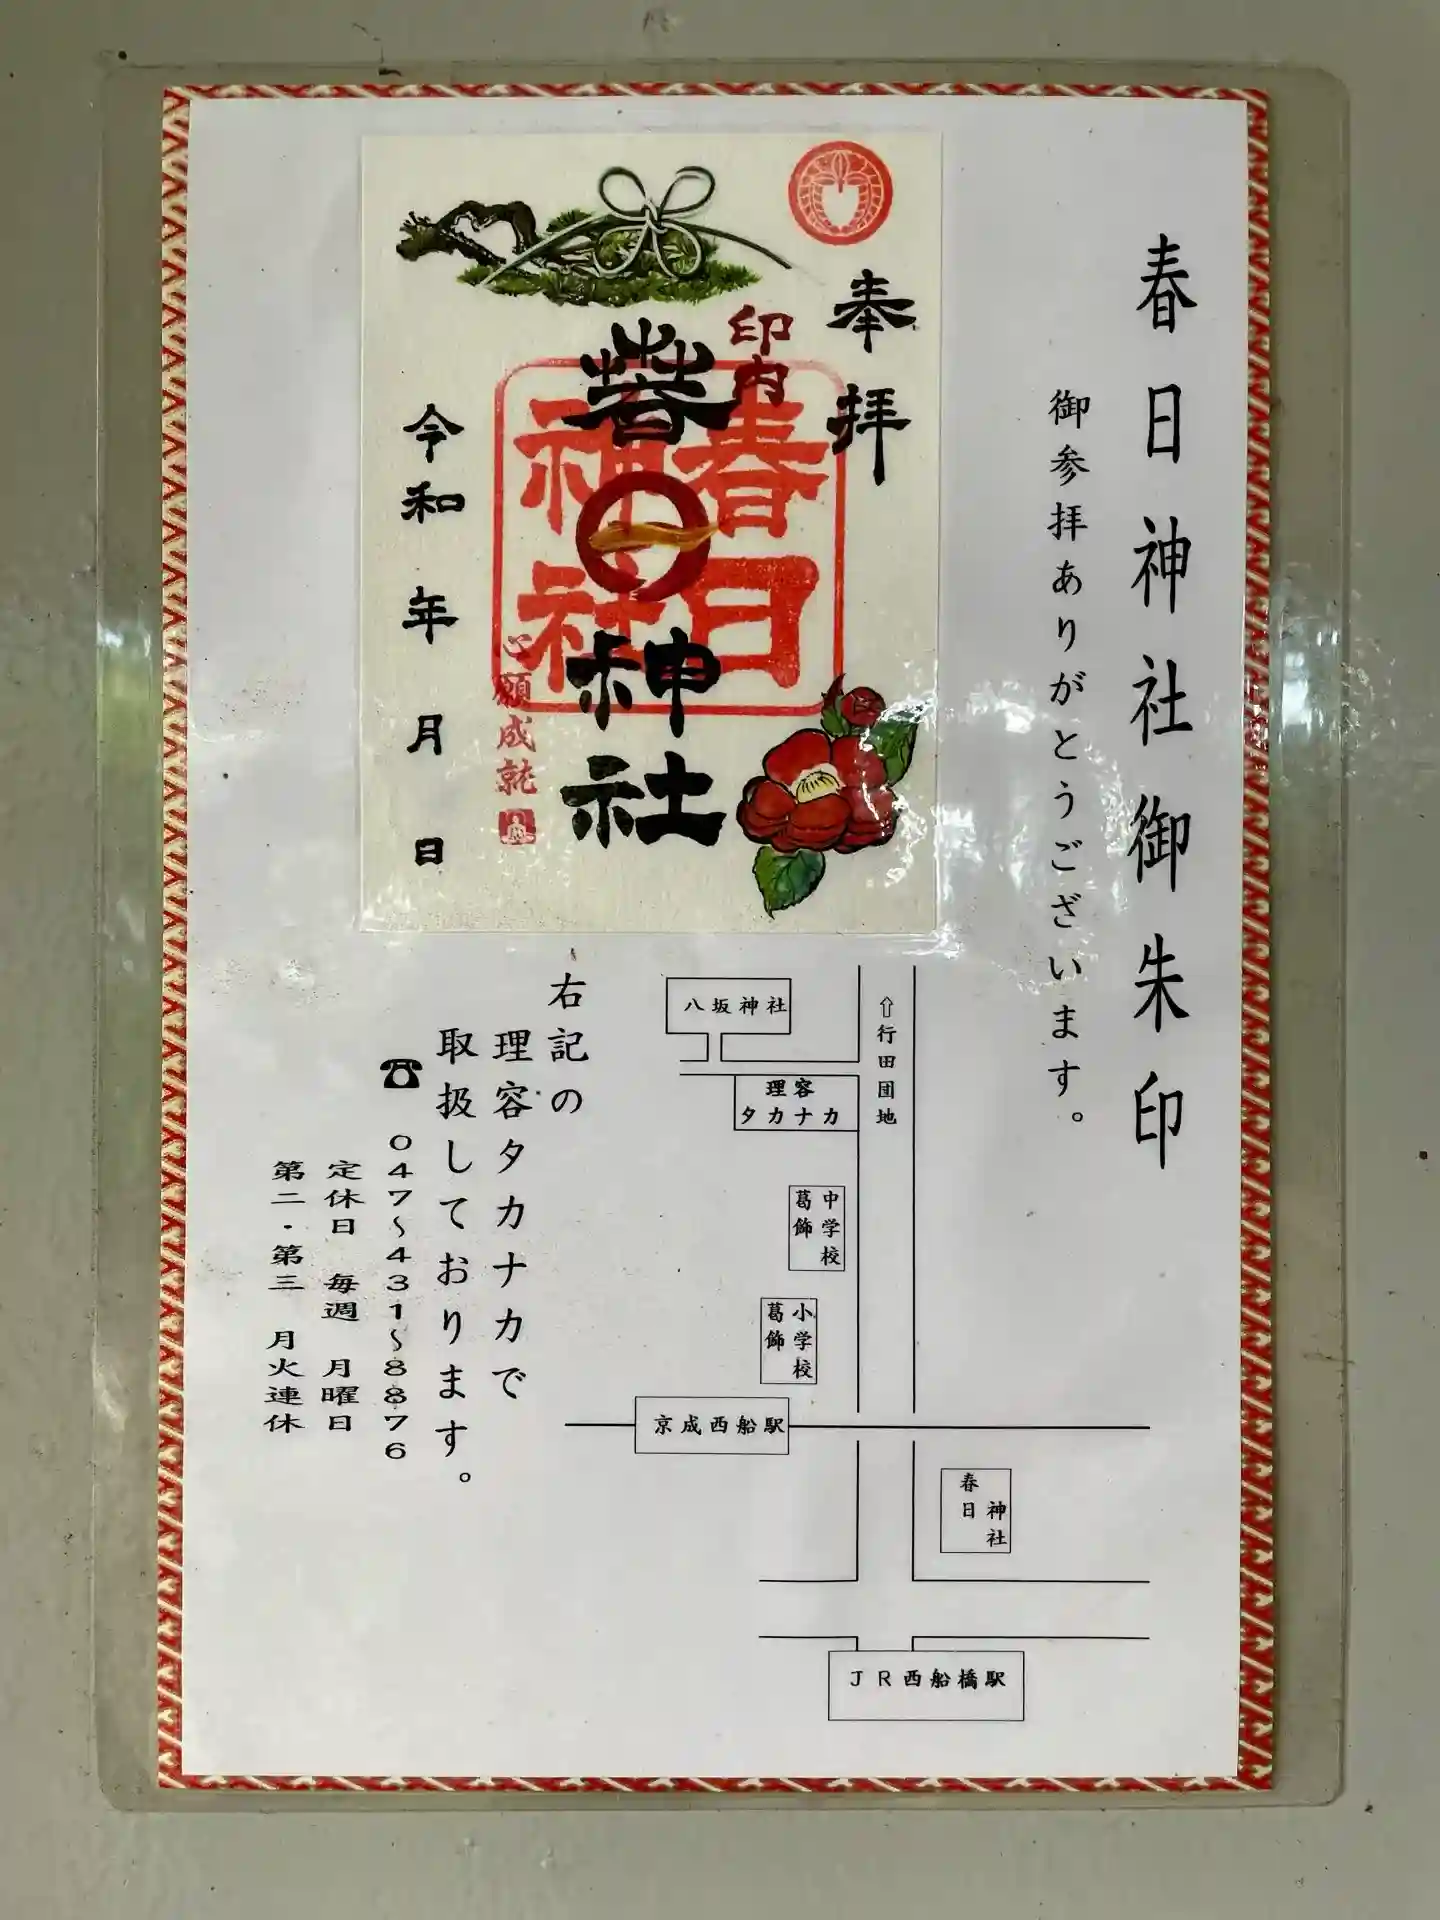 春日神社御朱印
御参拝ありがとうございます。
奉拝
印内
春日神社
春日神社
心願成就
令和 年 月 日
八坂神社
⇧行田団地
理容
タカナカ
葛飾
中学校
葛飾
小学校
京成西船駅
春日
神社
JR西船橋駅
右記の
理容タカナカで
取扱しております。
☎ 047~431~8876
定休日 毎週 月曜日
第二・第三 月火連休